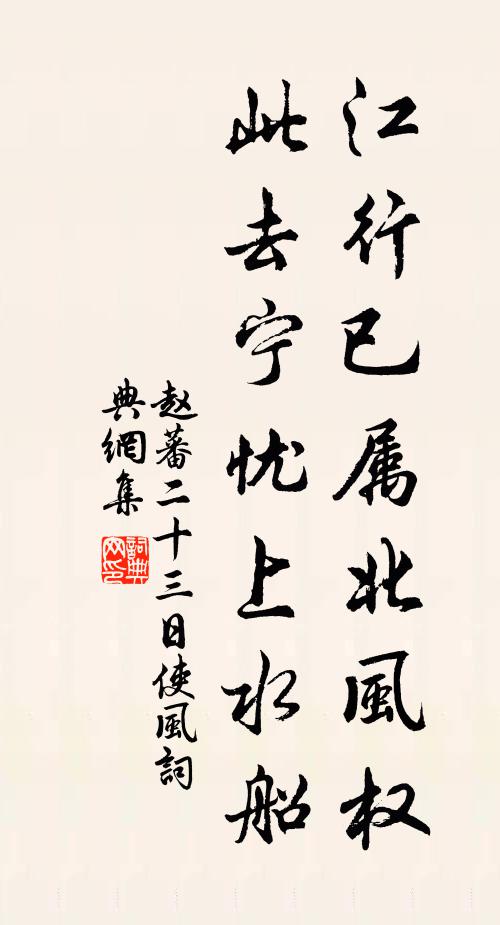 江行已属北風权
此去宁忧上水船
赵蕃二十三日使風詞
典網集
詞典网印